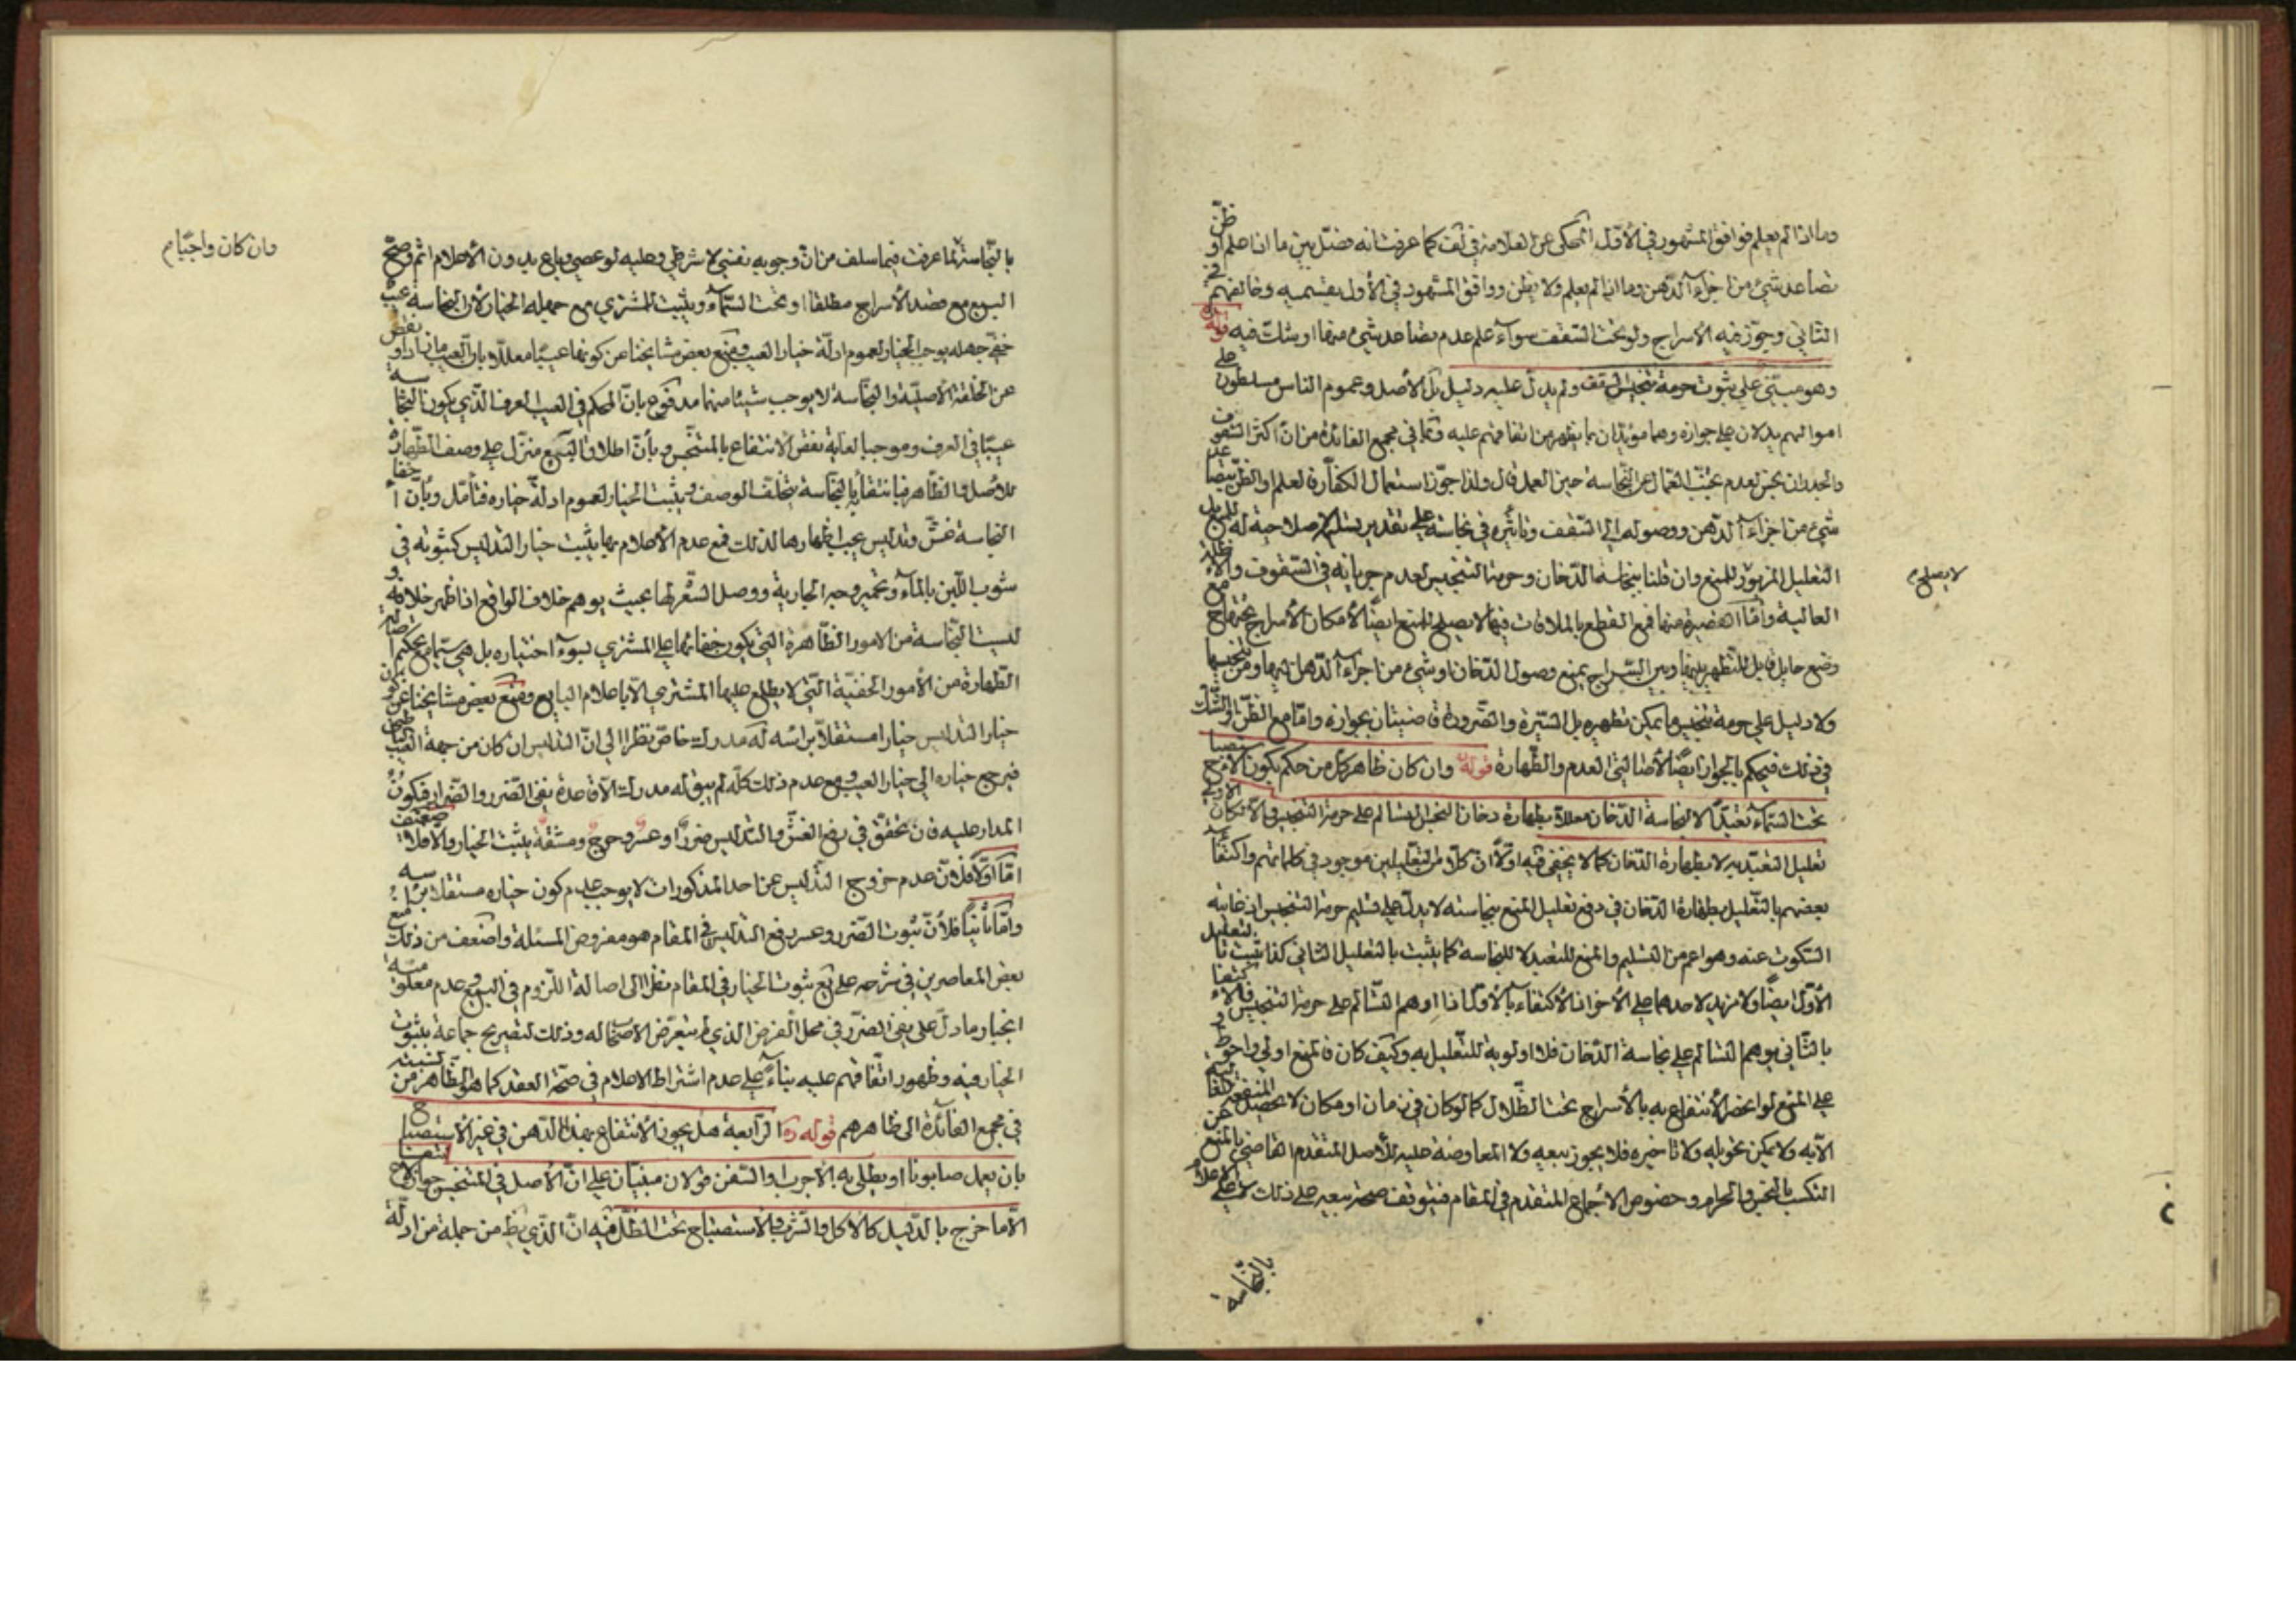 وما اذا لم يعلم فوافق المشهور في الأوّل المحكى عن العلامة في لف كما عرفت انه فصّل بين ما اذا علم او ظنّ
تصاعد شيئ من اجزاء الدّهن وما اذا لم يعلم ولا يظن ووافق المشهور في الأول بقسميه وخالفهم في
الثاني وجوّز فيه الاسراج ولو تحت السّقف سوآء علم عدم تصاعد شيئ منها او شك فيه قوله
وهو مبنيّ على ثبوت حرمة تنجيس السقف ولم يدل عليه دليل بل الأصل وعموم الناس مسلطون على
اموالهم يدلان على جوازه وهما مؤيدان بما يظهر من اتفاقهم عليه قال في مجمع الفائدة من انّ اكثر السقوف
والجدران نجس لعدم تجنّب العمال عن النّجاسة حين العمل قال ولذا جوّز استعمال الكفّار فالعلم والظن بتصاعد
شيئ من اجزاء الدّهن ووصوله الى السّقف وتاثيره في نجاسته على تقدير تسليم صلاحيته له لا يصلح
التعليل المزبور للمنع وان قلنا بنجاسة الدّخان وحرمة التنجيس لعدم جريانه في السّقوف والاظلة
العالية وامّا القصيرة منها فمع القطع بالملاقات فيها لا يصلح للمنع ايضًا لامكان الأسراج تحتها مع
وضع حايل قابل للتطهير بينها وبين السّراج يمنع وصول الدّخان او شيئ من اجزاء الدّهن اليها وتنجيسها
ولا دليل على حرمة تنجيس ما يمكن تطهيره بل السّيرة والضّرورة قاضيتان بجوازه وامّا مع الظنّ او الشّك
في ذلك فيحكم بالجواز ايضًا لأصالتي العدم والطّهارة قوله وان كان ظاهر كلّ من حكم بكون الاستصباح
تحت السّماء تعبّدًا لا لنجاسة الدّخان معللا بطهارة دخان النجس التسالم على حرمة التنجيس والا لكان الاولى
تعليل التعبّد به لا بطهارة الدّخان كما لا يخفى فيه اوّلًا انّ كلًا من التعليلين موجود في كلماتهم واكتفاء
بعضهم بالتّعليل بطهارة الدّخان في دفع تعليل المنع بنجاسته لا يدلّ على تسليم حرمة التنجيس اذ غايته
السّكوت عنه وهو اعم من التسليم والمنع للتعبد لا للنجاسة كما يثبت بالتعليل الثاني كذا يثبت بالتعليل
الأوّل ايضًا ولا مزيد لاحدهما على الأخر اذ الأكتفاء بالأوّل اذا اوهم التّسالم على حرمة التنجيس فالاكتفاء
بالثّاني يوهم التسالم على نجاسة الدّخان فلا اولوية للتعليل به وكيف كان فالمنع اولى واحوط و
على المنع لو انحصر الأنتفاع به بالأسراج تحت الظّلال كما لو كان في زمان او مكان لا يحصل المنفعة
الّا به ولا يمكن تحويله ولا تاخيره فلا يجوز بيعه ولا المعاوضة عليه للأصل المتقدم القاضي بالمنع عن
التكسب بالنجس والحرام وخصوص الاجماع المتقدم في المقام فيتوقف صحة بيعه على ذلك لا على الاعلام
بالنّجاسة
لا يصلح م
بالنّجاسة لما عرفت فيما سلف من انّ وجوبه نفسي لا شرطي وعليه لو عصى وباع بدون الأعلام اثم وصحّ
البيع مع قصد الأسراج مطلقا او تحت السّمآء ويثبت للمشتري مع جهله الخيار لأن النجاسة عيب
خفيّ جهله يوجب الخيار لعموم ادلّة خيار العيب ومنع بعض مشايخنا عن كونها عيبًا معللا بان العيب ما زاد او نقص
عن الخلقة الأصليّة والنّجاسة لا يوجب شيئا منهما مدفوع بانّ المحكم في العيب العرف الذّي يكون النجاسة
عيبًا في العرف وموجبا لغاية نقص الأنتفاع بالمتنجّس وبأنّ اطلاق البيع منزّل على وصف الطّهارة
للأصل والظّاهر فبانتفائه بالنّجاسة يتخلف الوصف فيثبت الخيار لعموم ادلّة خياره فتأمّل وبأنّ اخفاء
النجاسة غشّ وتدليس يجب اظهارها لذلك فمع عدم الأعلام بها يثبت خيار التدليس كثبوته في
شوب اللّبن بالماء وتحمير وجه الجارية ووصل الشّعر لها بحيث يوهم خلاف الواقع اذا ظهر خلافه و
ليست النّجاسة من الامور الظّاهرة التي يكون خفائها على المشتري بسوء اختياره بل هي سيّما مع تحكيم اصالة
الطّهارة من الأمور الخفيّة التّي لا يطلع عليها المشتري الّا باعلام البايع ومنع بعض مشايخنا عن كون
خيار التدليس خيارا مستقلّا براسه له مدرك خاصّ نظرا الى انّ التدليس ان كان من جهة العيب
فيرجع خياره الى خيار العيب ومع عدم ذلك كلّه لم يبق له مدرك الّا قاعدة نفي الضّرر والضّرار فيكون
المدار عليه فان تحقق في رفع الغشّ والتدليس ضررًا وعسر وحرج ومشقّة يثبت الخيار والّا فلا ضعيف
امّا اوّلًا فلأنّ عدم خروج التدليس عن احد المذكورات لا يوجب عدم كون خياره مستقلا براسه
وامّا ثانيًا فلأنّ ثبوت الضّرر وعسر رفع التدليس في المقام هو مفروض المسئلة واضعف من ذلك منع
بعض المعاصرين في شرحه على يع ثبوت الخيار في المقام نظرا الى اصالة اللّزوم في البيع وعدم معلومية
انجبار ما دلّ على نفي الضرر في محل الفرض الذي لم يتعرّض الاصحاب له وذلك لتصريح جماعة بثبوت
الخيار فيه وظهور اتّفاقهم عليه بناءً على عدم اشتراط الاعلام في صحّة العقد كما هو الظّاهر من نسبته
في مجمع الفائدة الى ظاهرهم قوله ره الرّابعة هل يجوز الأنتفاع بهذا الدّهن في غير الأستصباح
بان يعمل صابونا او يطلى به الأجرب والسّفن قولان مبنيّان على انّ الأصل في المتنجس جواز الانتفاع
الّا ما خرج بالدّليل كالاكل والشّرب والاستصباح تحت الظلّ فيه انّ الذّي يظ من جملة من ادلّة
وان كان واجبًا م